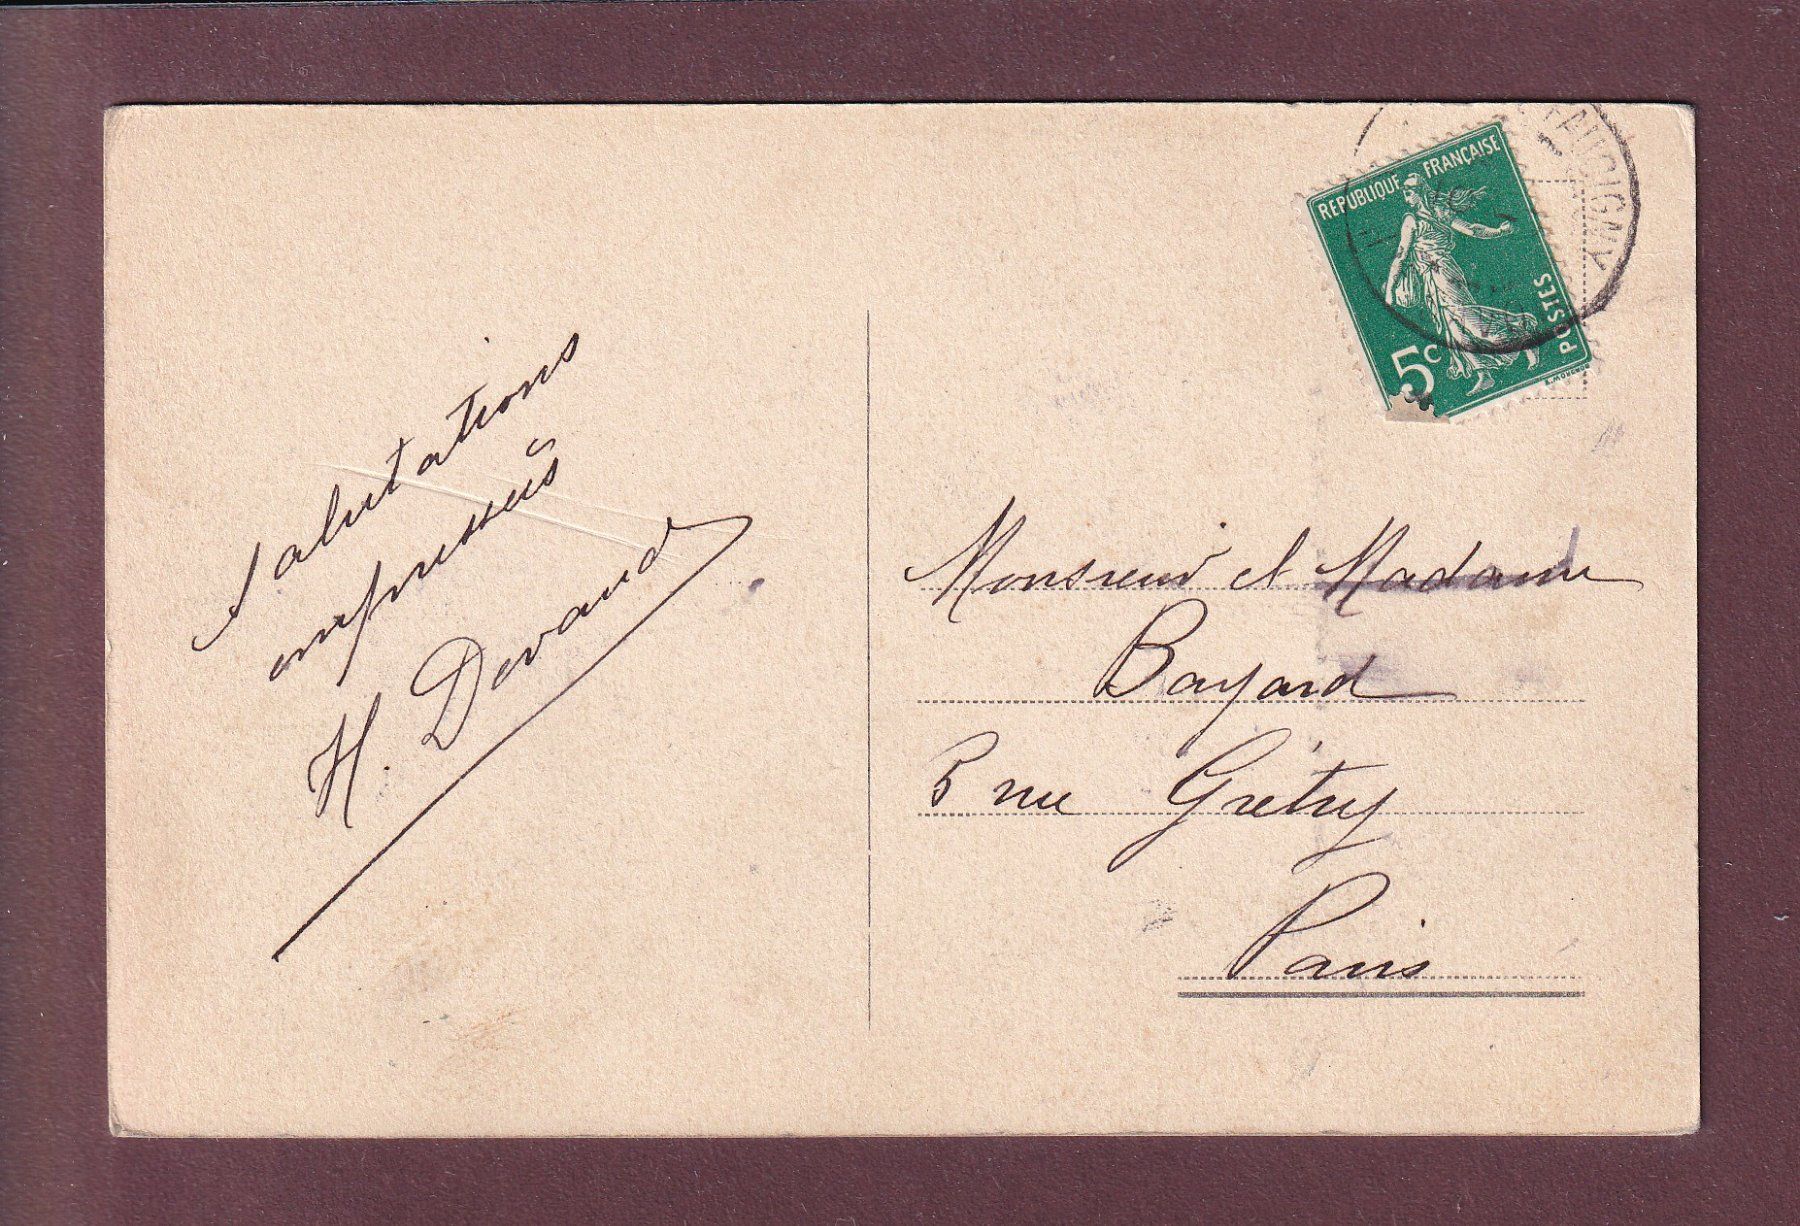 Salutations
empressées
H. Devaud
REPUBLIQUE FRANÇAISE
POSTES
5c
E. MOUCHON
Monsieur et Madame
Bayard
5 rue Grétry
Paris